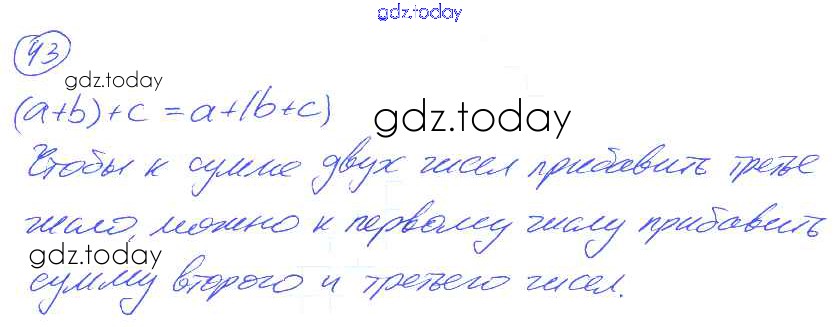 gdz.today
43
gdz.today
(a+b)+c = a+(b+c)
gdz.today
Чтобы к сумме двух чисел прибавить третье
число, можно к первому числу прибавить
gdz.today
сумму второго и третьего чисел.